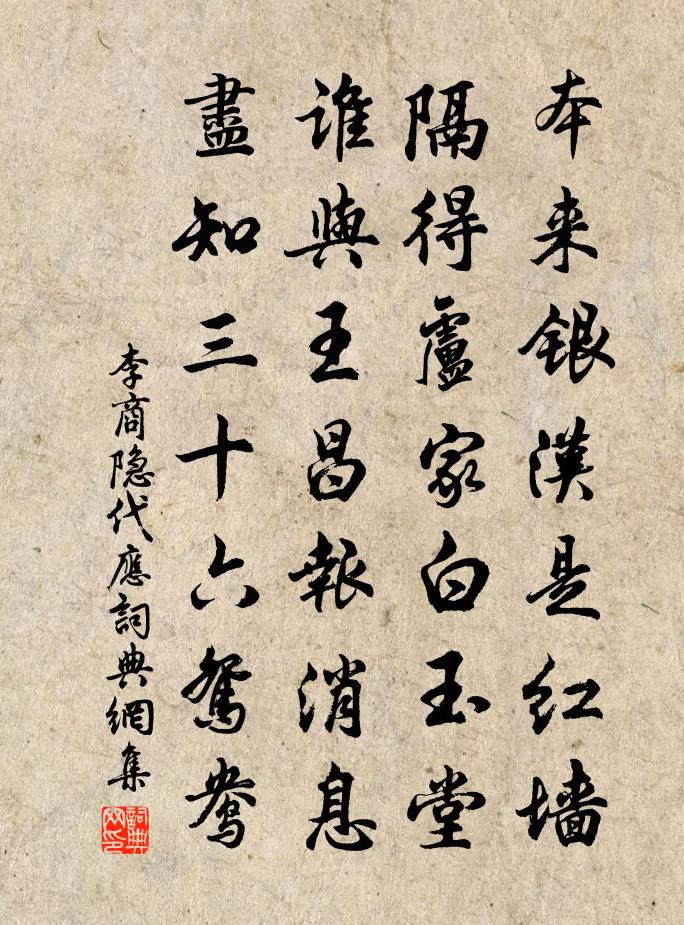 本来銀漢是红墙
隔得盧家白玉堂
誰與王昌報消息
盡知三十六鴛鴦
李商隐代應詞典網集
詞典网印